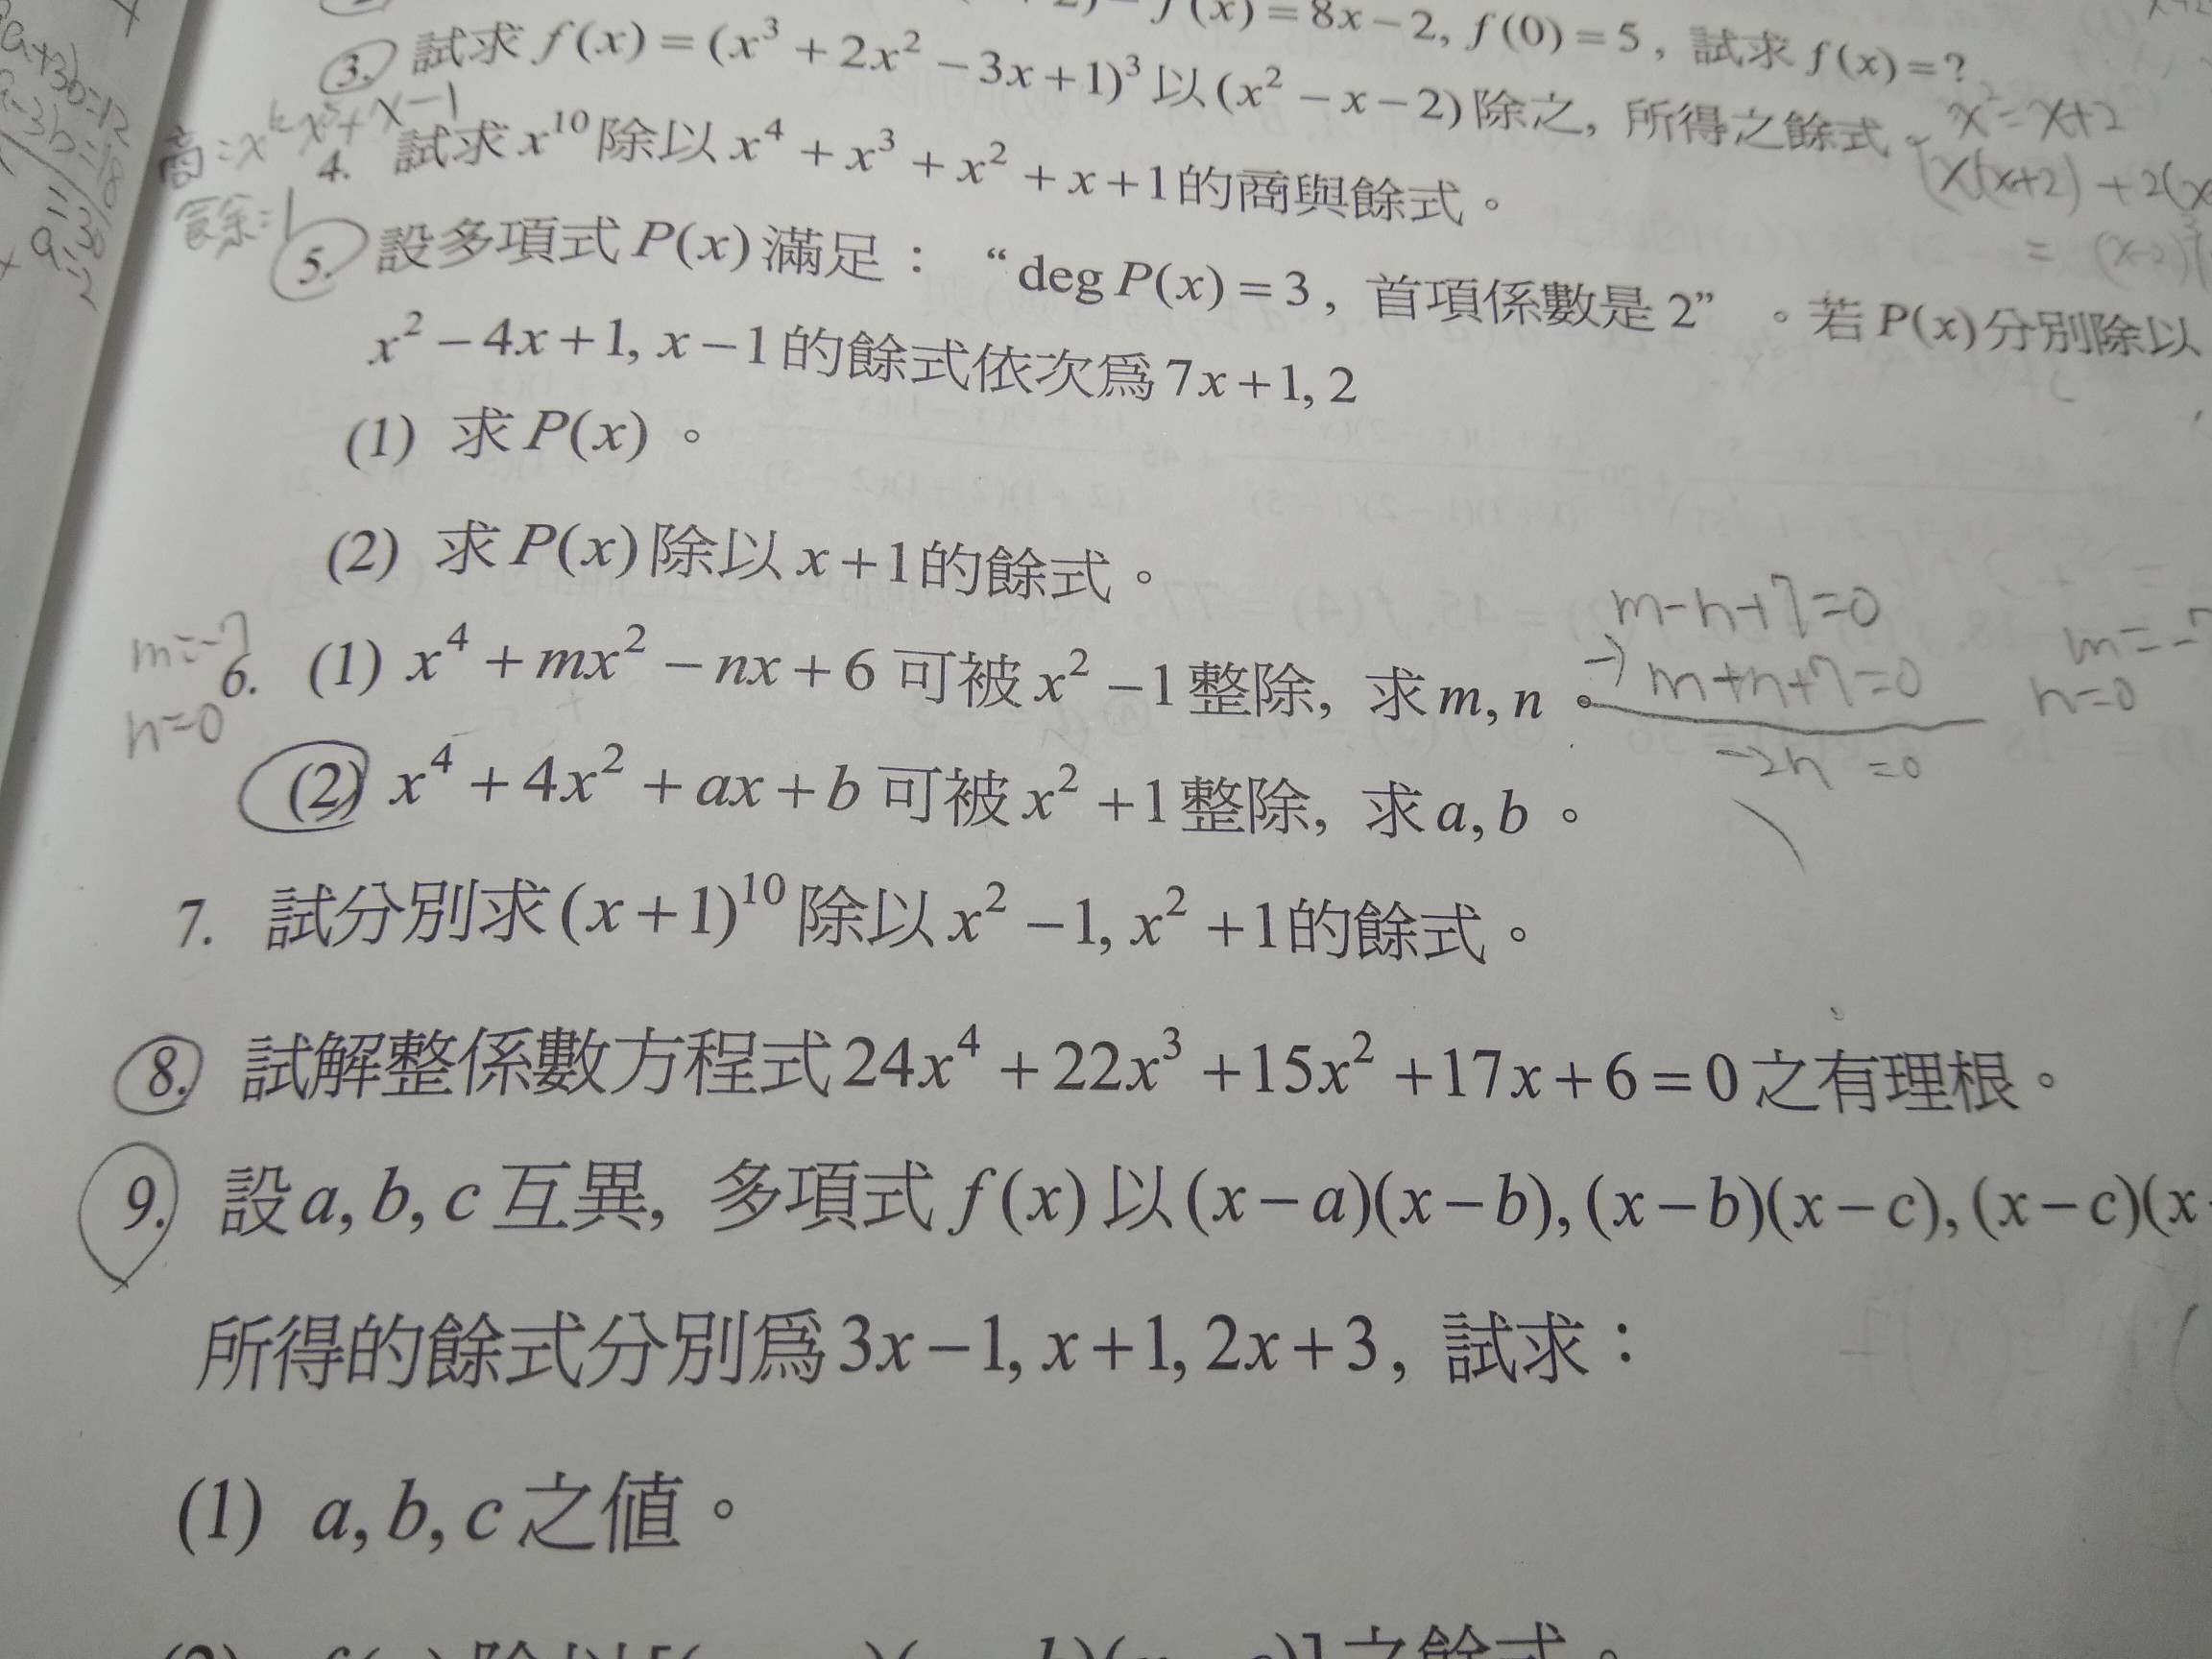 f(x)=8x−2, f(0)=5, 試求 f(x)=?
3. 試求 f(x)=(x³+2x²−3x+1)³以(x²−x−2)除之, 所得之餘式。
x²=x+2
商:x⁶-x⁵+x-1
4. 試求 x¹⁰除以 x⁴+x³+x²+x+1的商與餘式。
x(x+2)+2(x
餘:1
5. 設多項式 P(x) 滿足: “deg P(x)=3, 首項係數是2”。若 P(x) 分別除以
x²−4x+1, x−1的餘式依次爲7x+1, 2
(1) 求 P(x)。
(2) 求 P(x)除以 x+1的餘式。
m-n+7=0
m=-7
6. (1) x⁴+mx²−nx+6 可被 x²−1整除, 求 m, n。
m+n+7=0
m=-7
n=0
n=0
-2n=0
(2) x⁴+4x²+ax+b 可被 x²+1整除, 求 a, b。
7. 試分別求(x+1)¹⁰除以 x²−1, x²+1的餘式。
8. 試解整係數方程式24x⁴+22x³+15x²+17x+6=0之有理根。
9. 設a, b, c互異, 多項式 f(x)以(x−a)(x−b), (x−b)(x−c), (x−c)(x
所得的餘式分別爲3x−1, x+1, 2x+3, 試求:
(1) a, b, c之值。